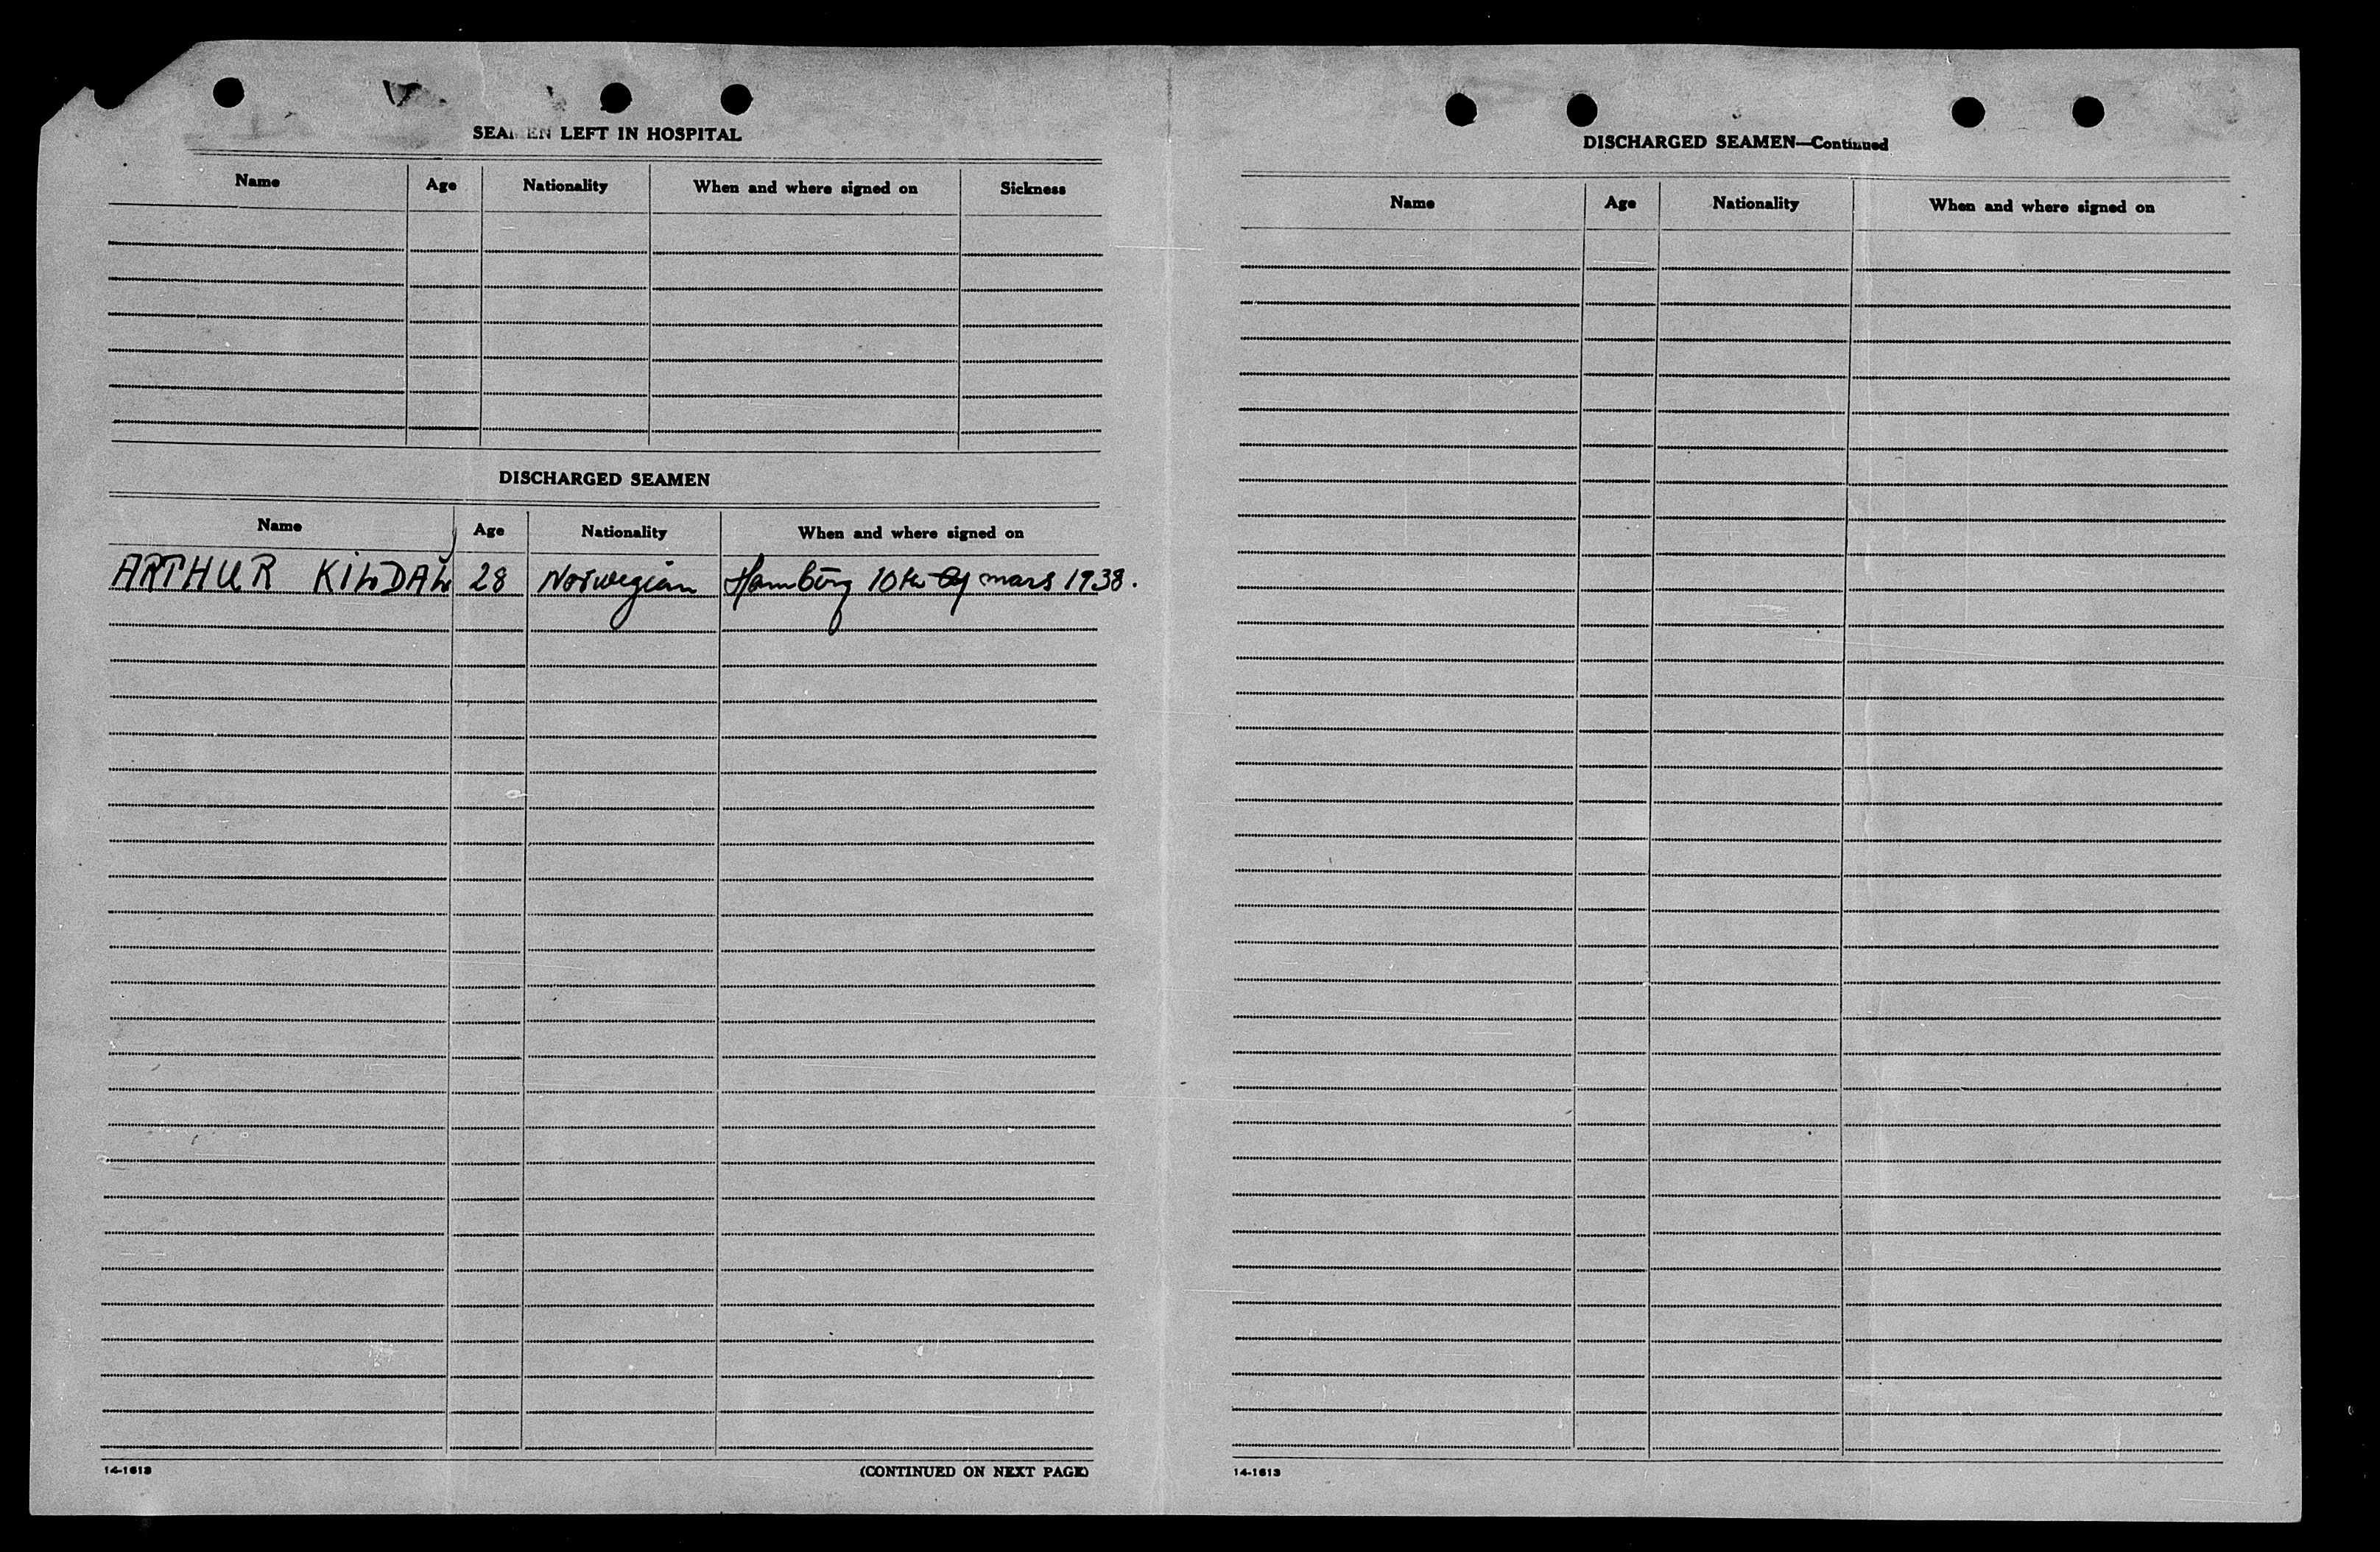 SEAMEN LEFT IN HOSPITAL
Name Age Nationality When and where signed on Sickness
DISCHARGED SEAMEN
Name Age Nationality When and where signed on
ARTHUR KILDAL 28 Norwegian Hamburg 10th of mars 1938.
14-1613 (CONTINUED ON NEXT PAGE)
DISCHARGED SEAMEN—Continued
Name Age Nationality When and where signed on
14-1613